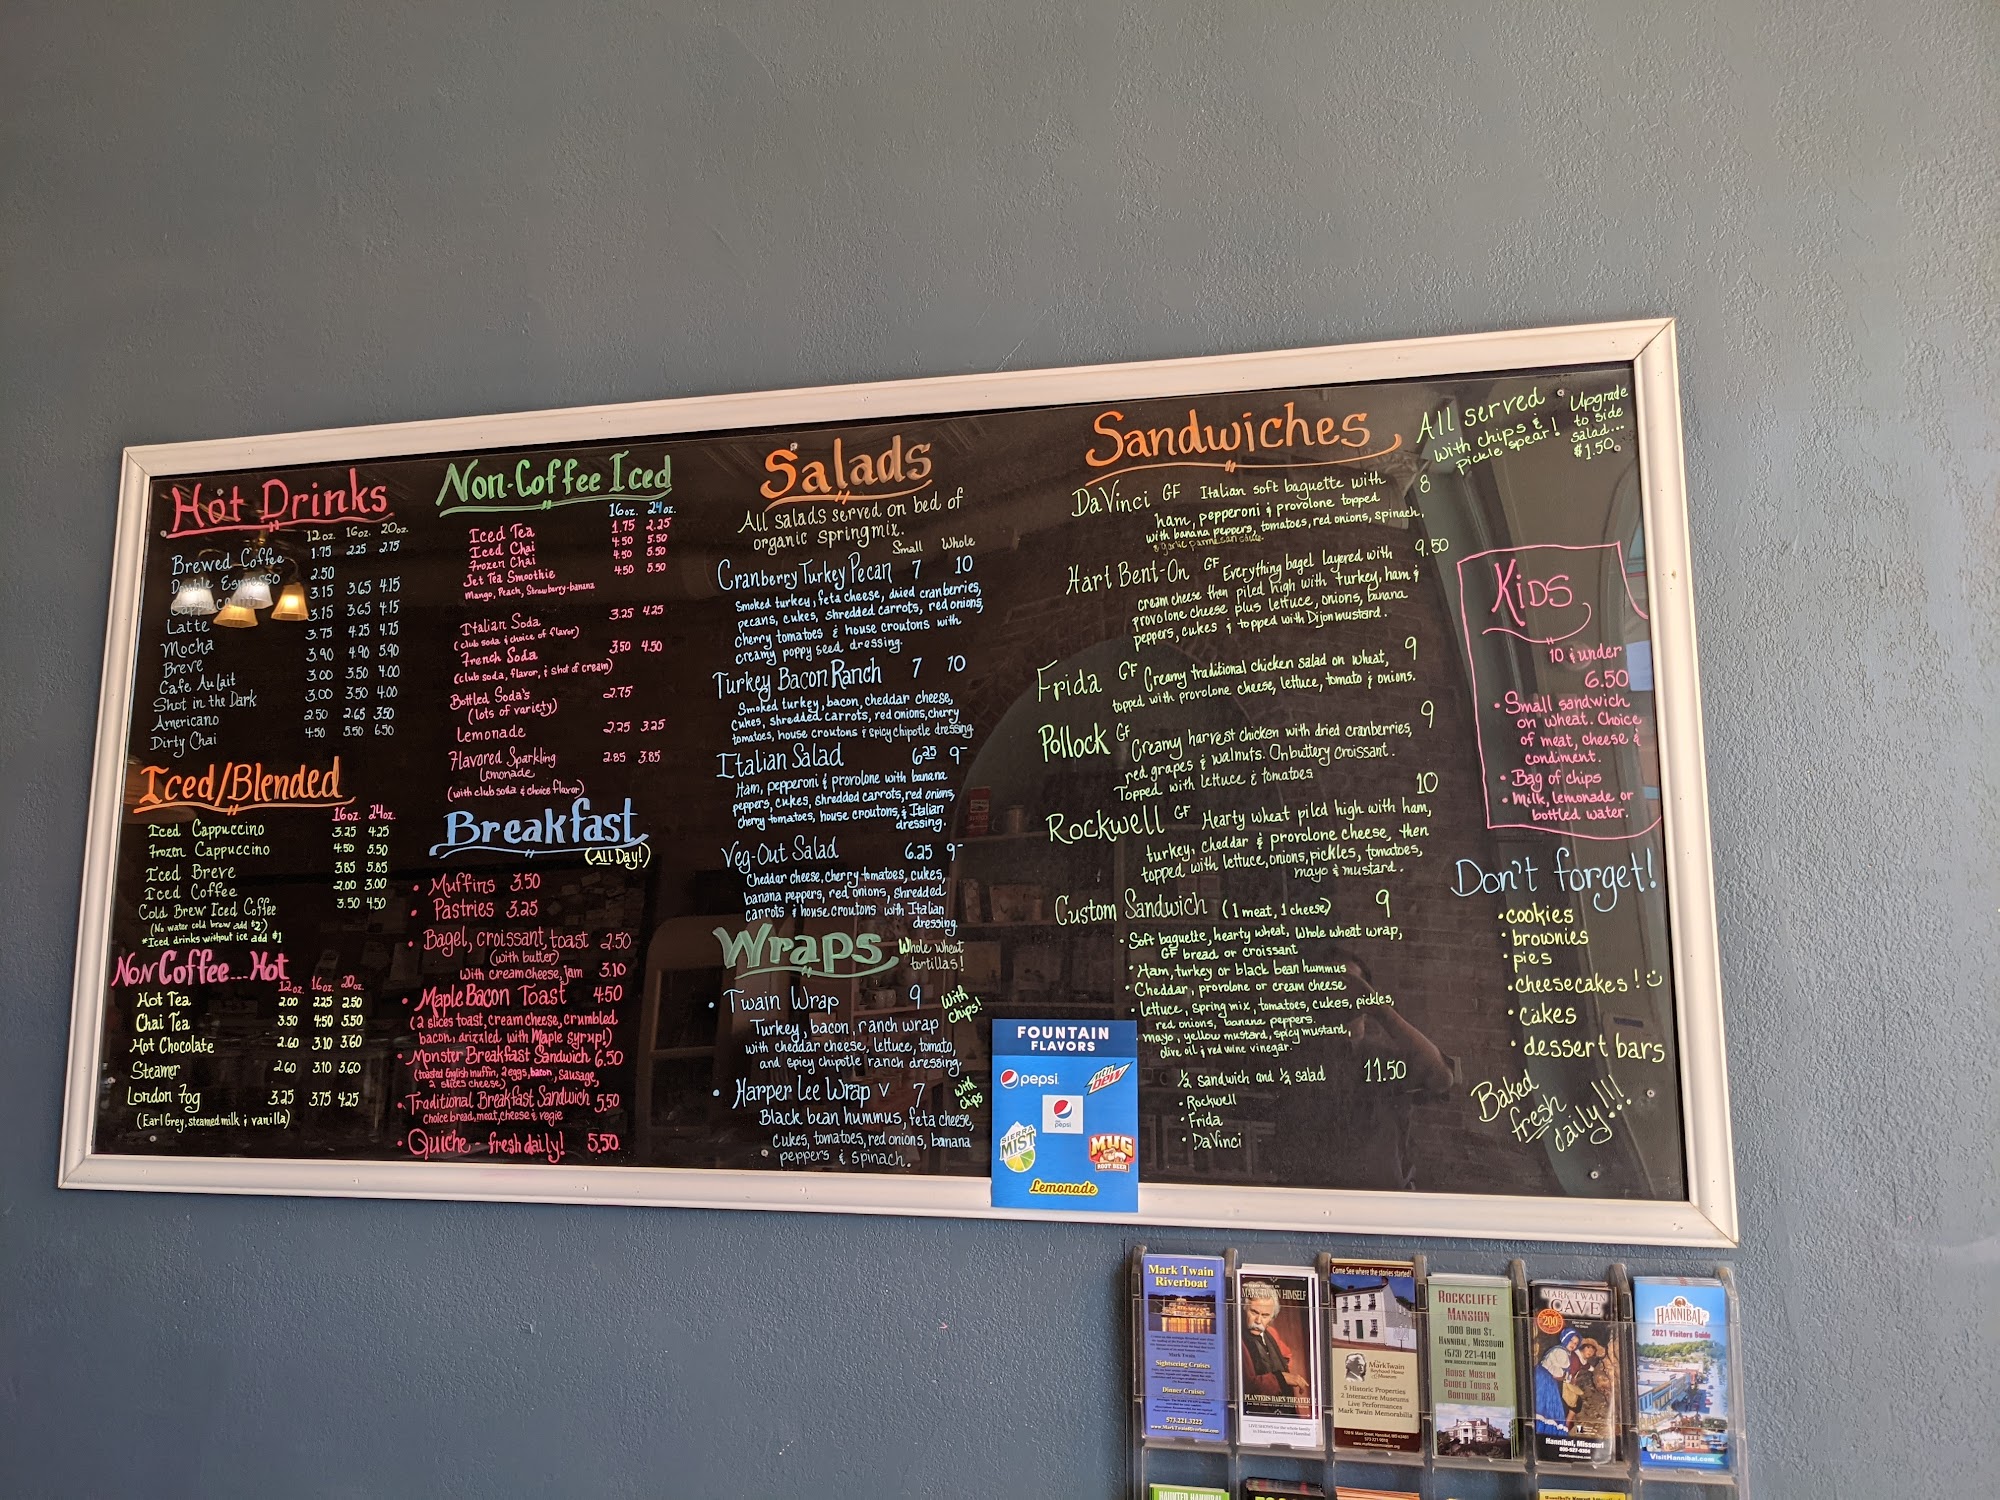 Hot Drinks
12 oz. 16oz. 20oz.
Brewed Coffee 1.75 2.25 2.75
Double Espresso 2.50
Cappuccino 3.15 3.65 4.15
Latte 3.15 3.65 4.15
Mocha 3.75 4.25 4.75
Breve 3.90 4.90 5.90
Cafe Au lait 3.00 3.50 4.00
Shot in the Dark 3.00 3.50 4.00
Americano 2.50 2.65 3.50
Dirty Chai 4.50 5.50 6.50
Iced/Blended
16oz. 24oz.
Iced Cappuccino 3.25 4.25
Frozen Cappuccino 4.50 5.50
Iced Breve 3.85 5.85
Iced Coffee 2.00 3.00
Cold Brew Iced Coffee 3.50 4.50
(No water cold brew add $2)
*Iced drinks without ice add $1
Non Coffee...Hot
12oz. 16oz. 20oz.
Hot Tea 2.00 2.25 2.50
Chai Tea 3.50 4.50 5.50
Hot Chocolate 2.60 3.10 3.60
Steamer 2.60 3.10 3.60
London Fog 3.25 3.75 4.25
(Earl Grey, steamed milk & vanilla)
Non-Coffee Iced
16oz. 24oz.
Iced Tea 1.75 2.25
Iced Chai 4.50 5.50
Frozen Chai 4.50 5.50
Jet Tea Smoothie 4.50 5.50
Mango, Peach, Strawberry-banana
Italian Soda 3.25 4.25
(club soda & choice of flavor)
French Soda 3.50 4.50
(club soda, flavor, & shot of cream)
Bottled Soda's 2.75
(lots of variety)
Lemonade 2.25 3.25
Flavored Sparkling 2.85 3.85
Lemonade
(with club soda & choice flavor)
Breakfast
(All Day!)
• Muffins 3.50
• Pastries 3.25
• Bagel, croissant, toast 2.50
(with butter)
With cream cheese, jam 3.10
• Maple Bacon Toast 4.50
(2 slices toast, cream cheese, crumbled
bacon, drizzled with Maple syrup!)
• Monster Breakfast Sandwich 6.50
(toasted English muffin, 2 eggs, bacon, sausage,
2 slices cheese)
• Traditional Breakfast Sandwich 5.50
Choice bread, meat, cheese & vegie
• Quiche - fresh daily! 5.50
Salads
All salads served on bed of
organic springmix.
Small Whole
Cranberry Turkey Pecan 7 10
Smoked turkey, feta cheese, dried cranberries,
pecans, cukes, shredded carrots, red onions,
cherry tomatoes & house croutons with
creamy poppy seed dressing.
Turkey Bacon Ranch 7 10
Smoked turkey, bacon, cheddar cheese,
cukes, shredded carrots, red onions, cherry
tomatoes, house croutons & spicy chipotle dressing
Italian Salad 6.25 9-
Ham, pepperoni & provolone with banana
peppers, cukes, shredded carrots, red onions,
cherry tomatoes, house croutons, & Italian
dressing.
Veg-Out Salad 6.25 9-
Cheddar cheese, cherry tomatoes, cukes,
banana peppers, red onions, shredded
carrots & house croutons with Italian
dressing
Wraps
Whole wheat
tortillas!
• Twain Wrap 9
With
chips!
Turkey, bacon, ranch wrap
with cheddar cheese, lettuce, tomato,
and spicy chipotle ranch dressing.
• Harper Lee Wrap V 7
With
chips
Black bean hummus, feta cheese,
cukes, tomatoes, red onions, banana
peppers & spinach.
FOUNTAIN
FLAVORS
pepsi
MTN DEW
diet pepsi
SIERRA MIST
MUG
ROOT BEER
Lemonade
Sandwiches
All served
with chips &
pickle spear!
Upgrade
to side
salad...
$1.50
DaVinci GF Italian soft baguette with 8
ham, pepperoni & provolone topped
with banana peppers, tomatoes, red onions, spinach,
& garlic parmesan
Hart Bent-On GF Everything bagel layered with 9.50
cream cheese then piled high with turkey, ham &
provolone cheese plus lettuce, onions, banana
peppers, cukes & topped with Dijon mustard.
Frida GF Creamy traditional chicken salad on wheat, 9
topped with provolone cheese, lettuce, tomato & onions.
Pollock GF Creamy harvest chicken with dried cranberries, 9
red grapes & walnuts. On buttery croissant.
Topped with lettuce & tomatoes
Rockwell GF Hearty wheat piled high with ham, 10
turkey, cheddar & provolone cheese, then
topped with lettuce, onions, pickles, tomatoes,
mayo & mustard.
Custom Sandwich (1 meat, 1 cheese) 9
• Soft baguette, hearty wheat, whole wheat wrap,
GF bread or croissant
• Ham, turkey or black bean hummus
• Cheddar, provolone or cream cheese
• Lettuce, spring mix, tomatoes, cukes, pickles,
red onions, banana peppers.
• mayo, yellow mustard, spicy mustard,
olive oil & red wine vinegar.
1/2 sandwich and 1/2 salad 11.50
• Rockwell
• Frida
• DaVinci
Kids
10 & under
6.50
• Small sandwich
on wheat. Choice
of meat, cheese &
condiment.
• Bag of chips
• Milk, lemonade or
bottled water.
Don't forget!
• cookies
• brownies
• pies
• cheesecakes!
• cakes
• dessert bars
Baked
fresh
daily!!!
Mark Twain
Riverboat
Sightseeing Cruises
Dinner Cruises
573.221.3222
www.MarkTwainRiverboat.com
MARK TWAIN HIMSELF
PLANTERS BARN THEATER
Come See where the stories started!
Mark Twain
Boyhood Home
& Museum
5 Historic Properties
2 Interactive Museums
Live Performances
Mark Twain Memorabilia
ROCKCLIFFE
MANSION
1000 BIRD ST.
HANNIBAL, MISSOURI
(573) 221-4140
HOUSE MUSEUM
GUIDED TOURS &
BOUTIQUE B&B
MARK TWAIN
CAVE
200
Hannibal, Missouri
HANNIBAL
2021 Visitors Guide
VisitHannibal.com
HAUNTED HANNIBAL